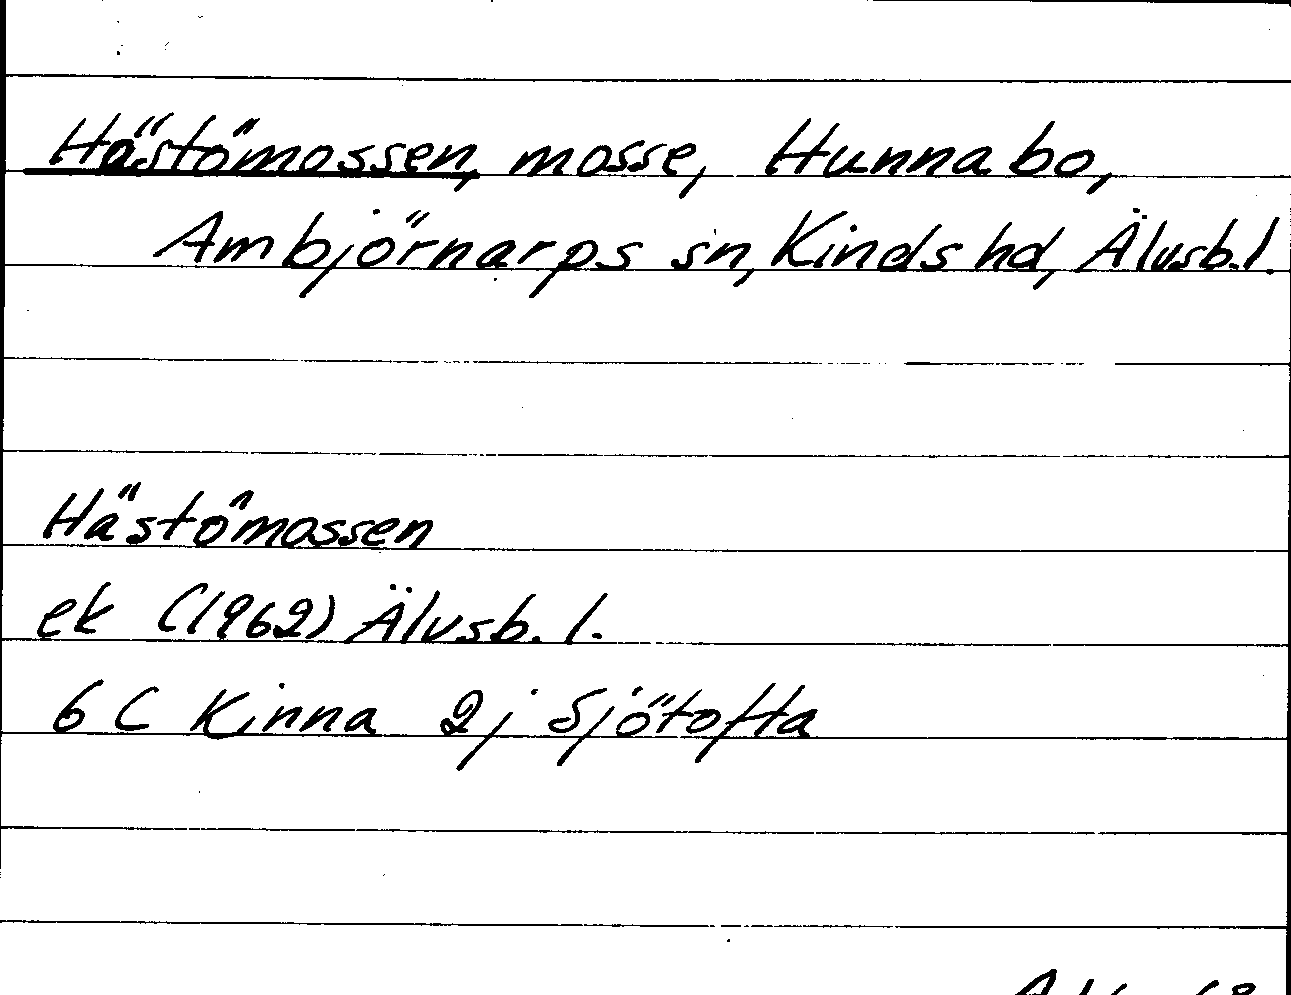 Hästömossen, mosse, Hunnabo,
Ambjörnarps sn, Kinds hd, Älvsb. l.
Hästömossen
ek (1962) Älvsb. l.
6 C Kinna 2j Sjötofta